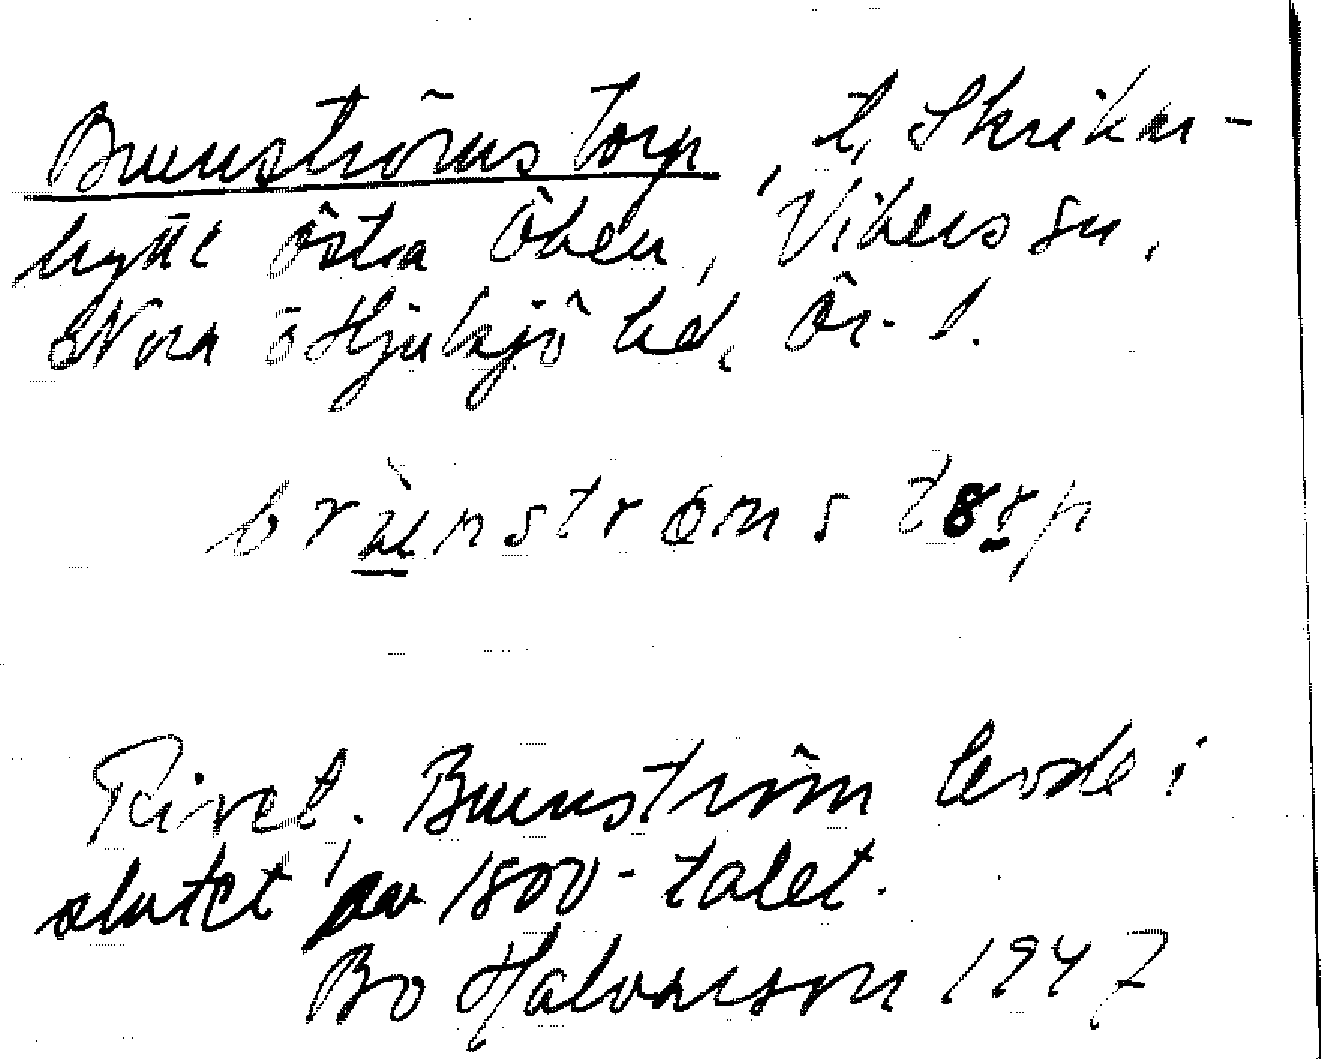 Brunströmstorp, t. Skrikar-
hytte östra Öken, Vikers sn,
Nora o Hjulsjö hd, Ör. l.
brunstrøms torp
Rivet. Brunström levde i
slutet av 1800-talet.
Bo Halvarsson 1947